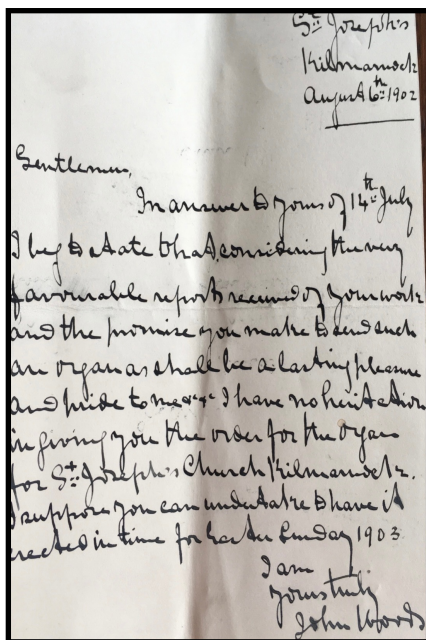 St. Joseph's
Kilmarnock
August 6th 1902
Gentlemen,
In answer to yours of 14th July
I beg to state that, considering the very
favourable reports received of your work
and the promise you make to send such
an organ as shall be a lasting pleasure
and pride to me &c &c I have no hesitation
in giving you the order for the organ
for St. Joseph's Church Kilmarnock.
I suppose you can undertake to have it
erected in time for Easter Sunday 1903
I am
Yours truly
John Woods